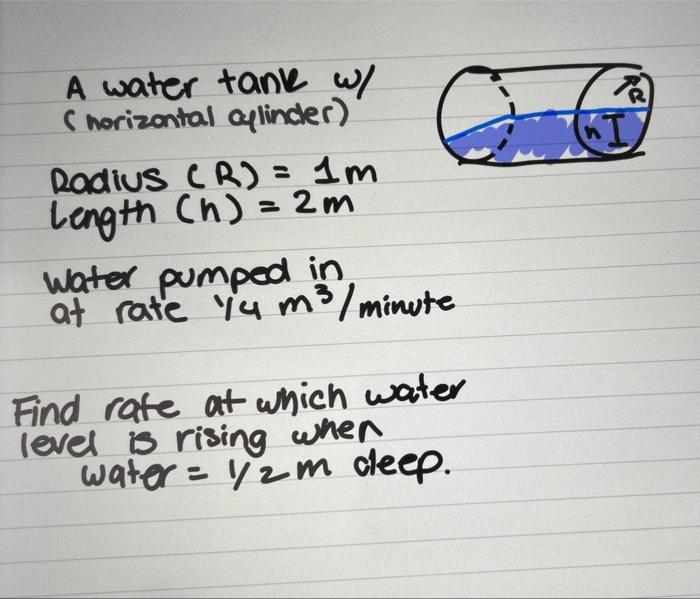 A water tank w/
(horizontal cylinder)
R
h
Radius (R) = 1m
Length (h) = 2m
Water pumped in
at rate 1/4 m³/minute
Find rate at which water
level is rising when
water = 1/2m deep.